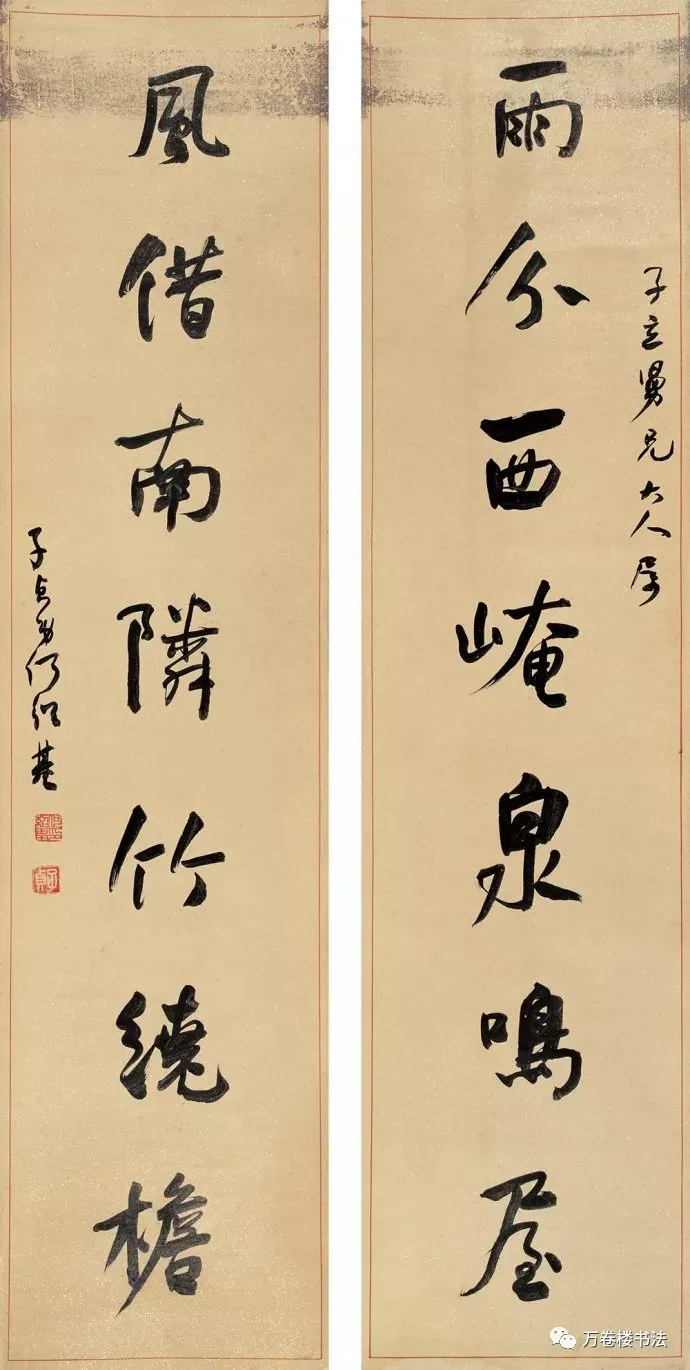 子立舅兄大人屬
雨分西崦泉鳴屋
風借南隣竹繞檐
子貞弟何紹基
子貞
万卷楼书法